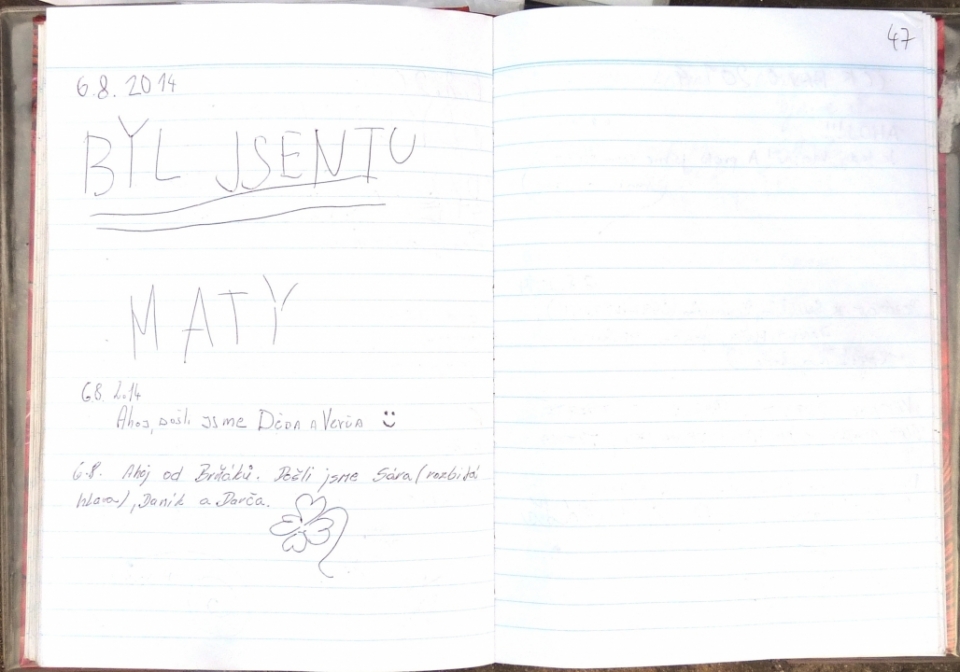 6.8. 2014
BYL JSEM TU
MATY
68. 2.14
Ahoj, došli jsme Dčda a Verča
6.8. Ahoj od Brňáků. Došli jsme Sára (rozbitá
hlava), Daník a Darča.
47